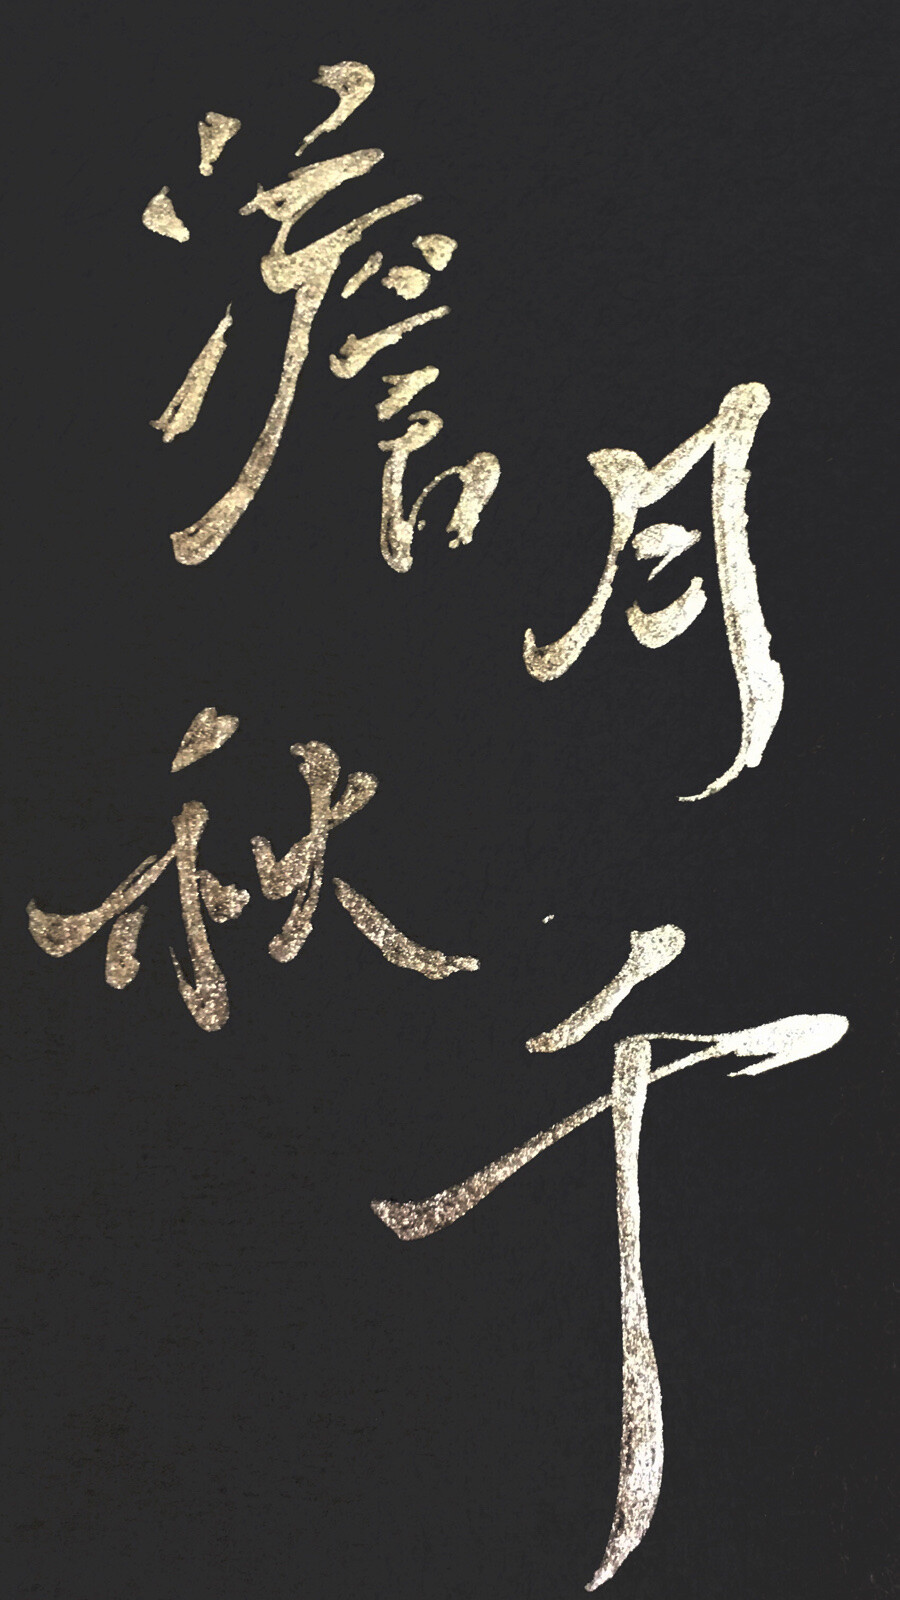 月千
澹秋